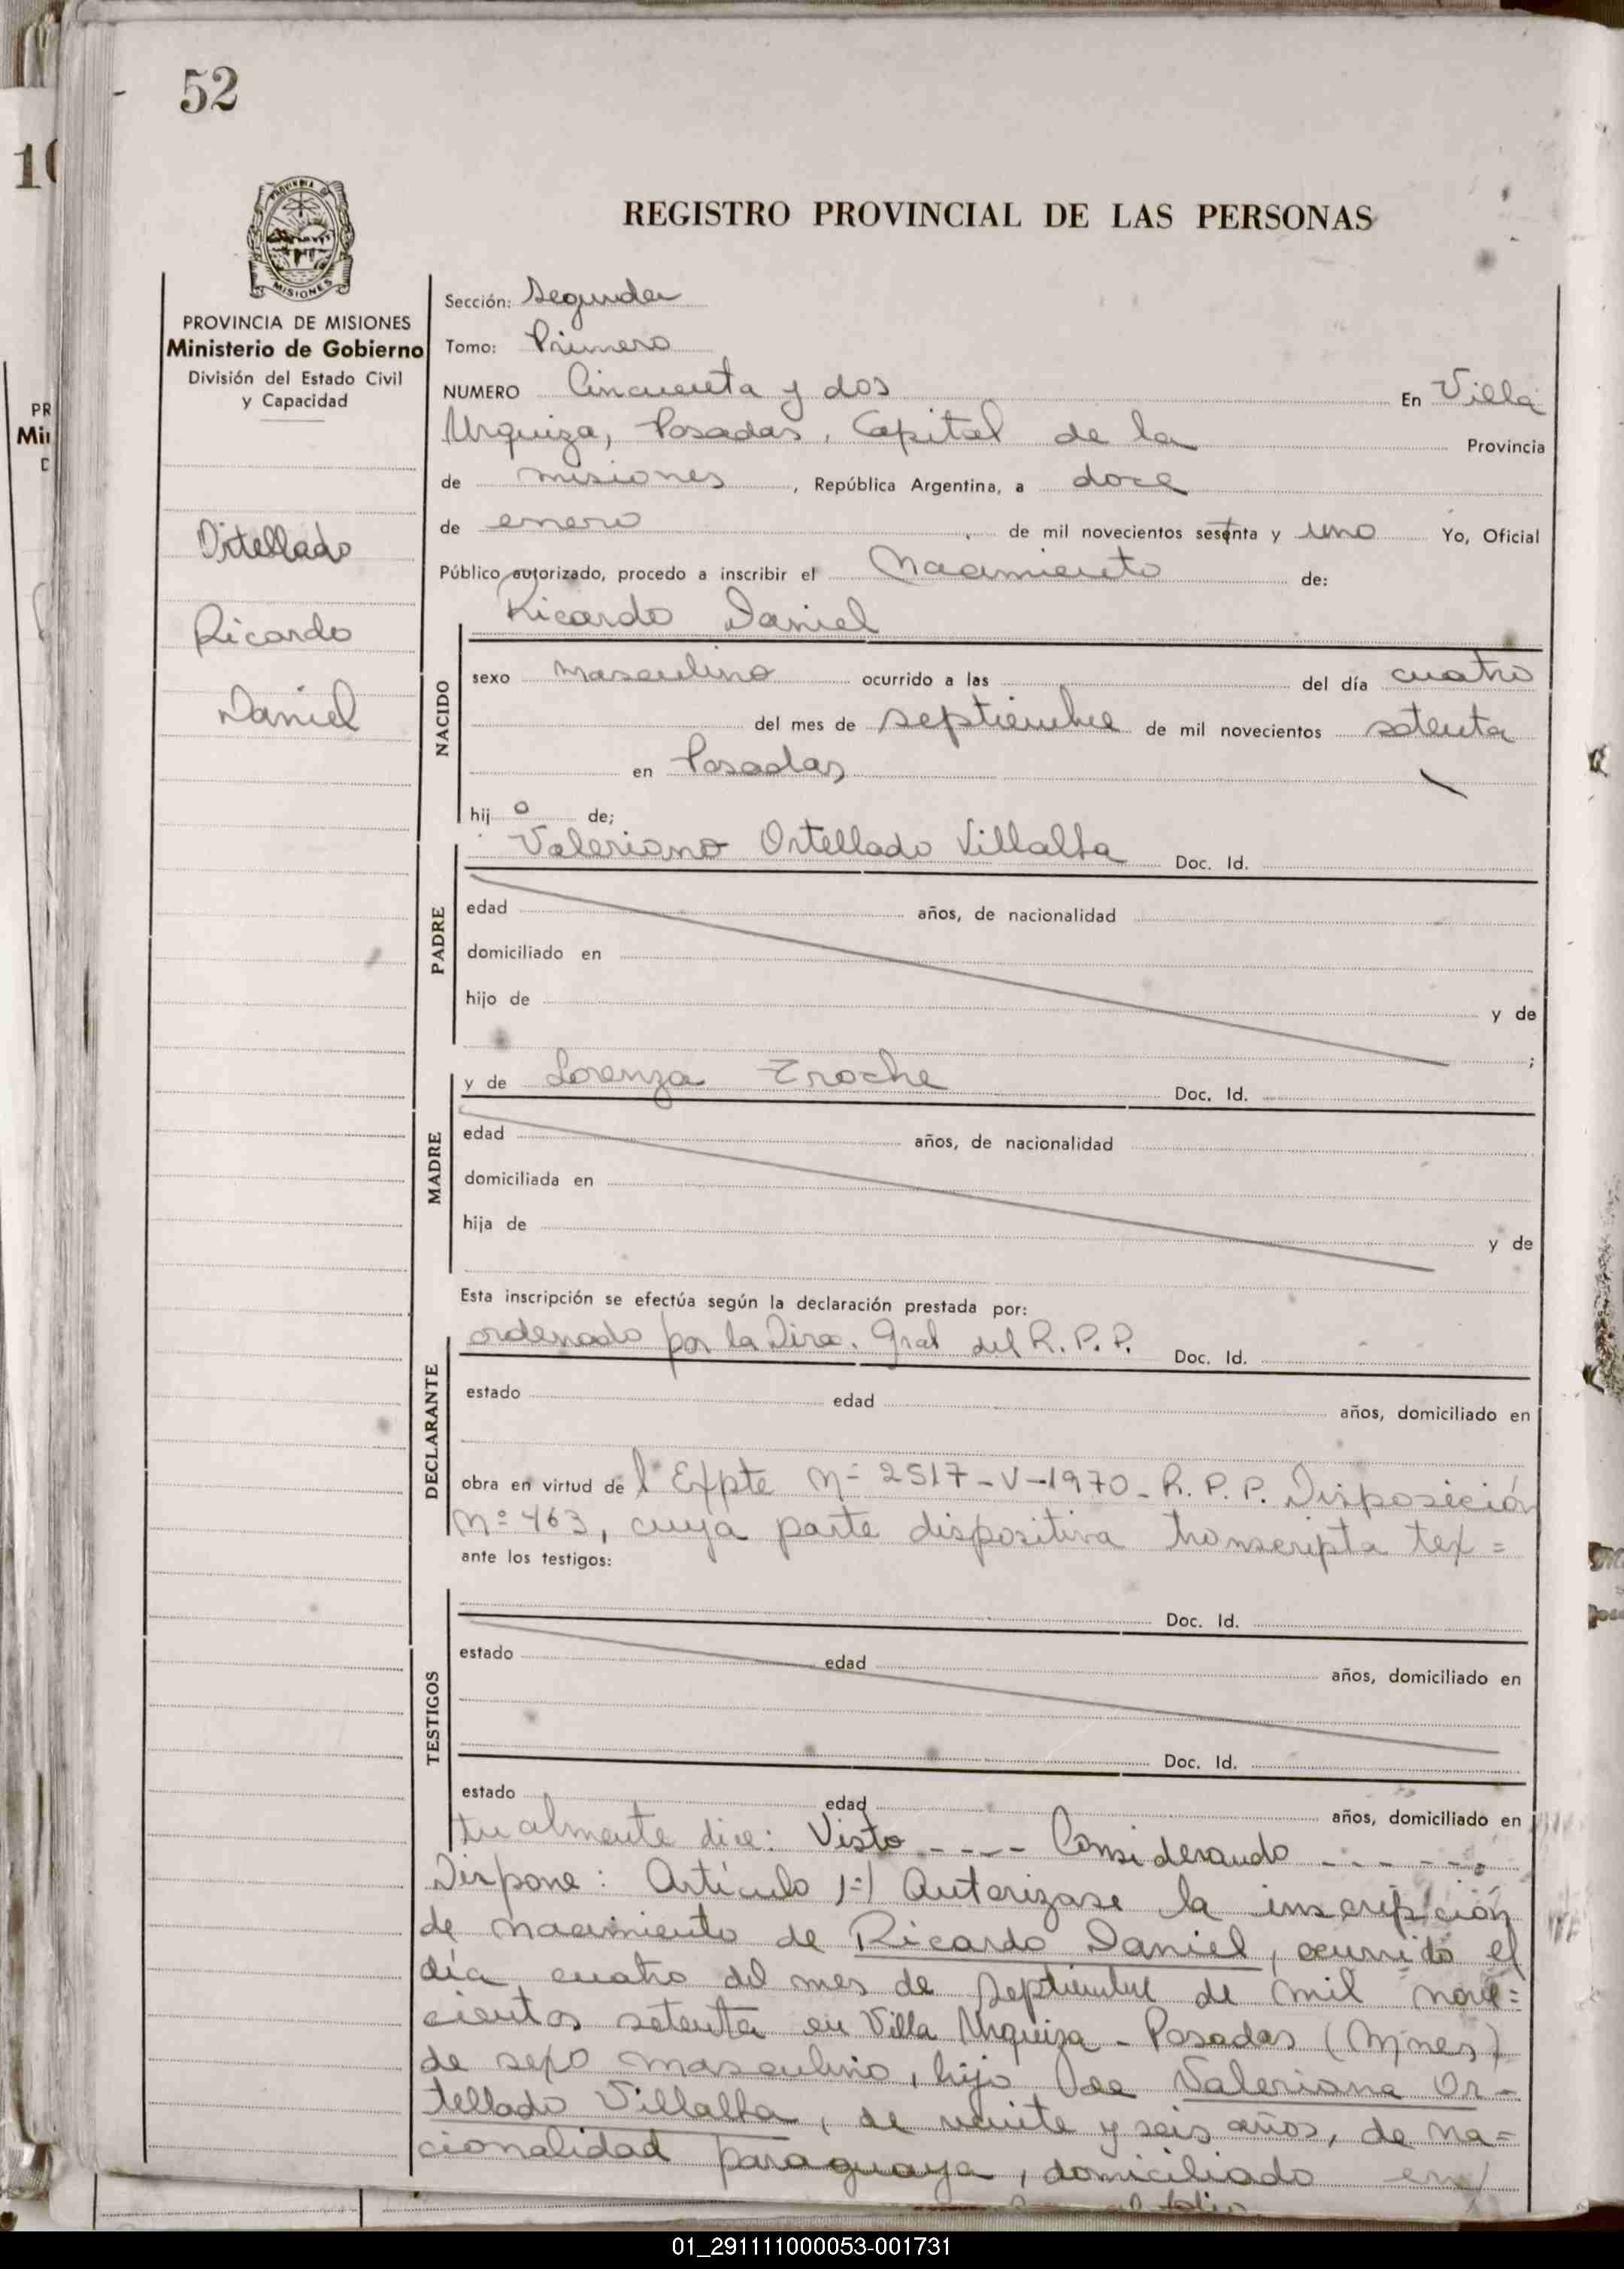 52
REGISTRO PROVINCIAL DE LAS PERSONAS
PROVINCIA DE MISIONES
MISIONES
PROVINCIA DE MISIONES
Ministerio de Gobierno
División del Estado Civil
y Capacidad
Ortellado
Ricardo
Daniel
Sección: Segunda
Tomo: Primero
NUMERO Cincuenta y dos En Villa
Urquiza, Posadas, Capital de la Provincia
de misiones, República Argentina, a doce
de enero de mil novecientos setenta y uno Yo, Oficial
Público autorizado, procedo a inscribir el Nacimiento de:
Ricardo Daniel
NACIDO
sexo masculino ocurrido a las del día cuatro
del mes de septiembre de mil novecientos setenta
en Posadas
hijo de;
PADRE
Valeriano Ortellado Villalba Doc. Id.
edad años, de nacionalidad
domiciliado en
hijo de y de
;
MADRE
y de Lorenza Troche Doc. Id.
edad años, de nacionalidad
domiciliada en
hija de y de
Esta inscripción se efectúa según la declaración prestada por:
DECLARANTE
ordenado por la Direc. Gral del R.P.P. Doc. Id.
estado edad años, domiciliado en
obra en virtud de l Expte Nº 2517-V-1970- R.P.P. Disposición
Nº 463, cuya parte dispositiva transcripta tex=
ante los testigos:
TESTIGOS
Doc. Id.
estado edad años, domiciliado en
Doc. Id.
estado edad años, domiciliado en
tualmente dice: Visto ---- Considerando -----
Dispone: Artículo 1º) Autorizase la inscripción
de nacimiento de Ricardo Daniel, ocurrido el
día cuatro del mes de septiembre de mil nove=
cientos setenta en Villa Urquiza - Posadas (Mnes)
de sexo masculino, hijo de Valeriano Or-
tellado Villalba, de veinte y seis años, de na=
cionalidad paraguaya, domiciliado en/
01_291111000053-001731